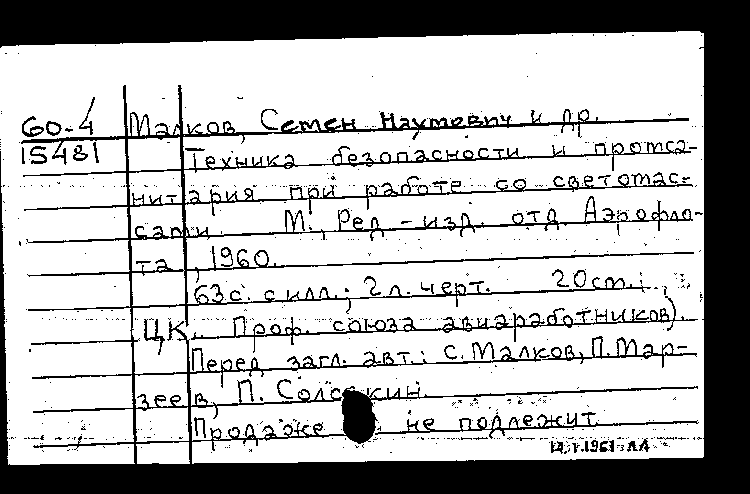 60-4 Малков, Семен Наумович и др.
15481 Техника безопасности и промса-
нитария при работе со светомас-
сами. М., Ред.-изд. отд. Аэрофло-
та, 1960.
63с. с илл.; 2 л. черт. 20 cm.
ЦК. Проф. союза авиаработников).
Перед загл. авт.: С. Малков, П. Мар-
зеев, П.
Продаже не подлежит